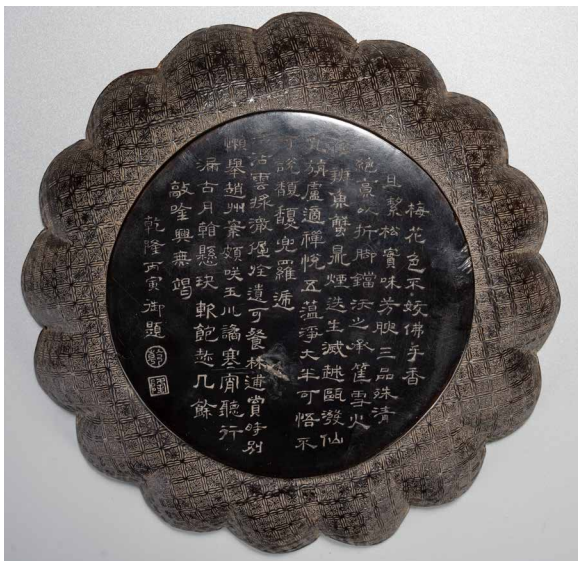 梅花色不妖佛手香
且絜松實味芳腴三品殊清
絕烹以折脚鐺沃之承筐雪火
候辨魚蟹鼎煙迭生滅越甌潑仙
乳氊廬適禪悅五蘊淨大半可悟不
可說馥馥兜羅遞
活活雲漿澈偓佺遺可餐林逋賞時別
懶舉趙州案頗咲玉川譎寒宵聽行
漏古月看懸玦軟飽趁几餘
敲唫興無竭
乾隆丙寅御題
乾
隆